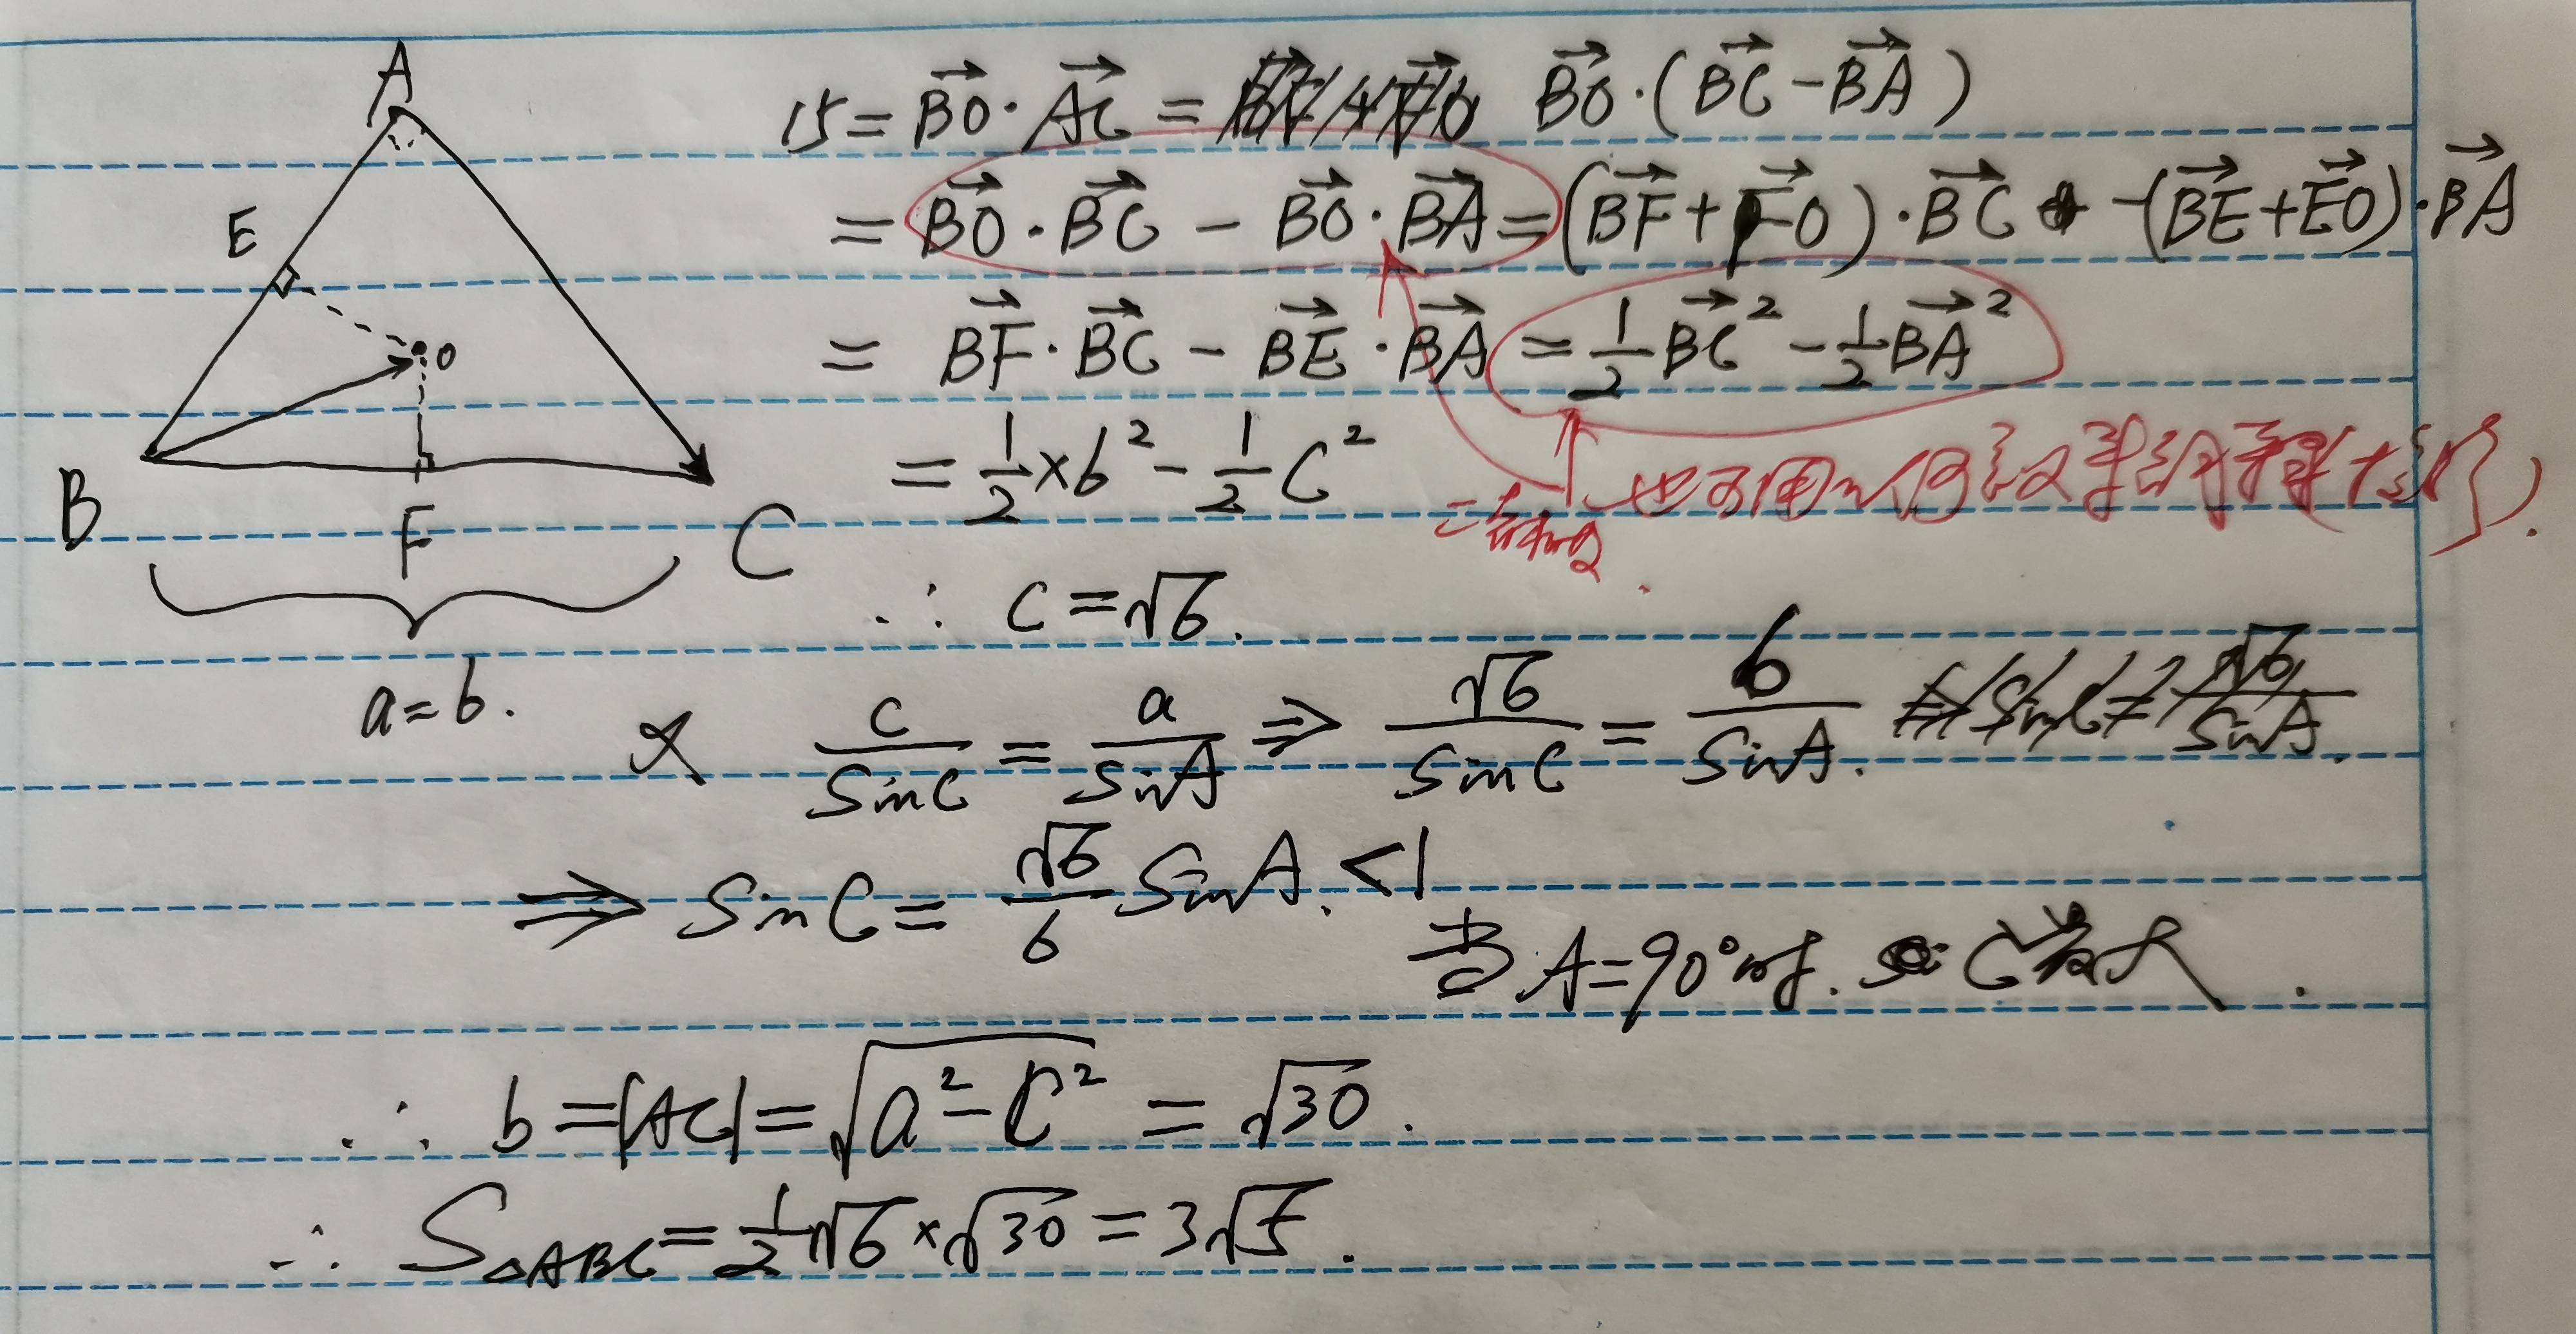 A
E
O
B
F
C
a=6.
15 = \vec{BO}·\vec{AC} = \vec{BO}·(\vec{BC}-\vec{BA})
= \vec{BO}·\vec{BC} - \vec{BO}·\vec{BA} = (\vec{BF}+\vec{FO})·\vec{BC} -(\vec{BE}+\vec{EO})·\vec{BA}
= \vec{BF}·\vec{BC} - \vec{BE}·\vec{BA} = \frac{1}{2}\vec{BC}^2 - \frac{1}{2}\vec{BA}^2
= \frac{1}{2}×6^2 - \frac{1}{2}C^2
也可用几何意义
∴ C=√6.
又 \frac{c}{sinC} = \frac{a}{sinA} ⇒ \frac{√6}{sinC} = \frac{6}{sinA}.
⇒ sinC = \frac{√6}{6} sinA. <1
当A=90°时. C最大.
∴ b=|AC|=\sqrt{a^2-C^2} = √30.
∴ S△ABC = \frac{1}{2}√6×√30 = 3√5.